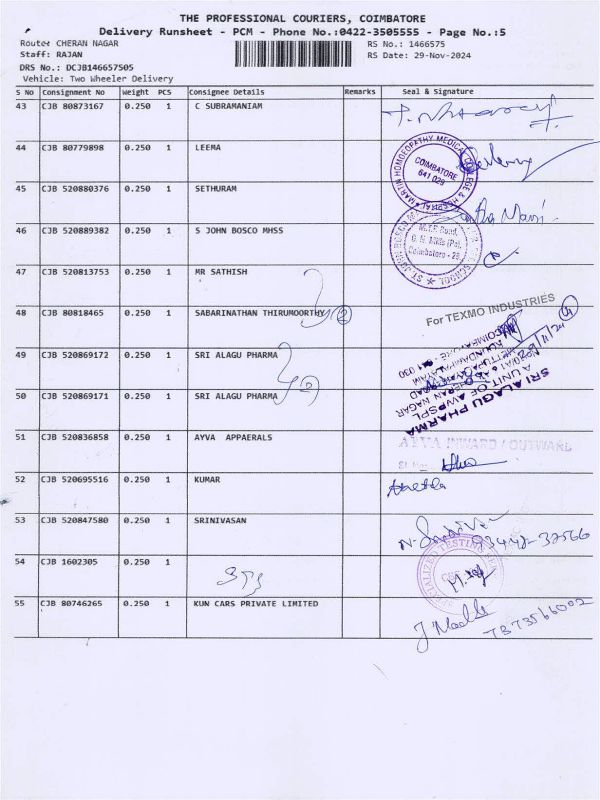 THE PROFESSIONAL COURIERS, COIMBATORE
Delivery Runsheet - PCM - Phone No.:0422-3505555 - Page No.:5
Route: CHERAN NAGAR
RS No.: 1466575
Staff: RAJAN
RS Date: 29-Nov-2024
DRS No.: DCJB146657505
Vehicle: Two Wheeler Delivery
S No Consignment No Weight PCS Consignee Details Remarks Seal & Signature
43 CJB 80873167 0.250 1 C SUBRAMANIAM
44 CJB 80779898 0.250 1 LEEMA
MARTIN HOMOEOPATHY MEDICAL COLLEGE & HOSPITAL
COIMBATORE
641 029
45 CJB 520880376 0.250 1 SETHURAM
46 CJB 520889382 0.250 1 S JOHN BOSCO MHSS
ST. JOHN BOSCO SCHOOL
M.T.P. Road,
G. N. Mills (Po),
Coimbatore - 29
47 CJB 520813753 0.250 1 MR SATHISH
48 CJB 80818465 0.250 1 SABARINATHAN THIRUMOORTHY 2
For TEXMO INDUSTRIES
49 CJB 520869172 0.250 1 SRI ALAGU PHARMA
50 CJB 520869171 0.250 1 SRI ALAGU PHARMA 2
SRI ALAGU PHARMA
A UNIT OF AWPSPL
CHERAN NAGAR
51 CJB 520836858 0.250 1 AYVA APPAERALS
AYVA INWARD / OUTWARD
Sl. No:
52 CJB 520695516 0.250 1 KUMAR
53 CJB 520847580 0.250 1 SRINIVASAN
54 CJB 1602305 0.250 1
SPECIALIZED TESTING
55 CJB 80746265 0.250 1 KUN CARS PRIVATE LIMITED